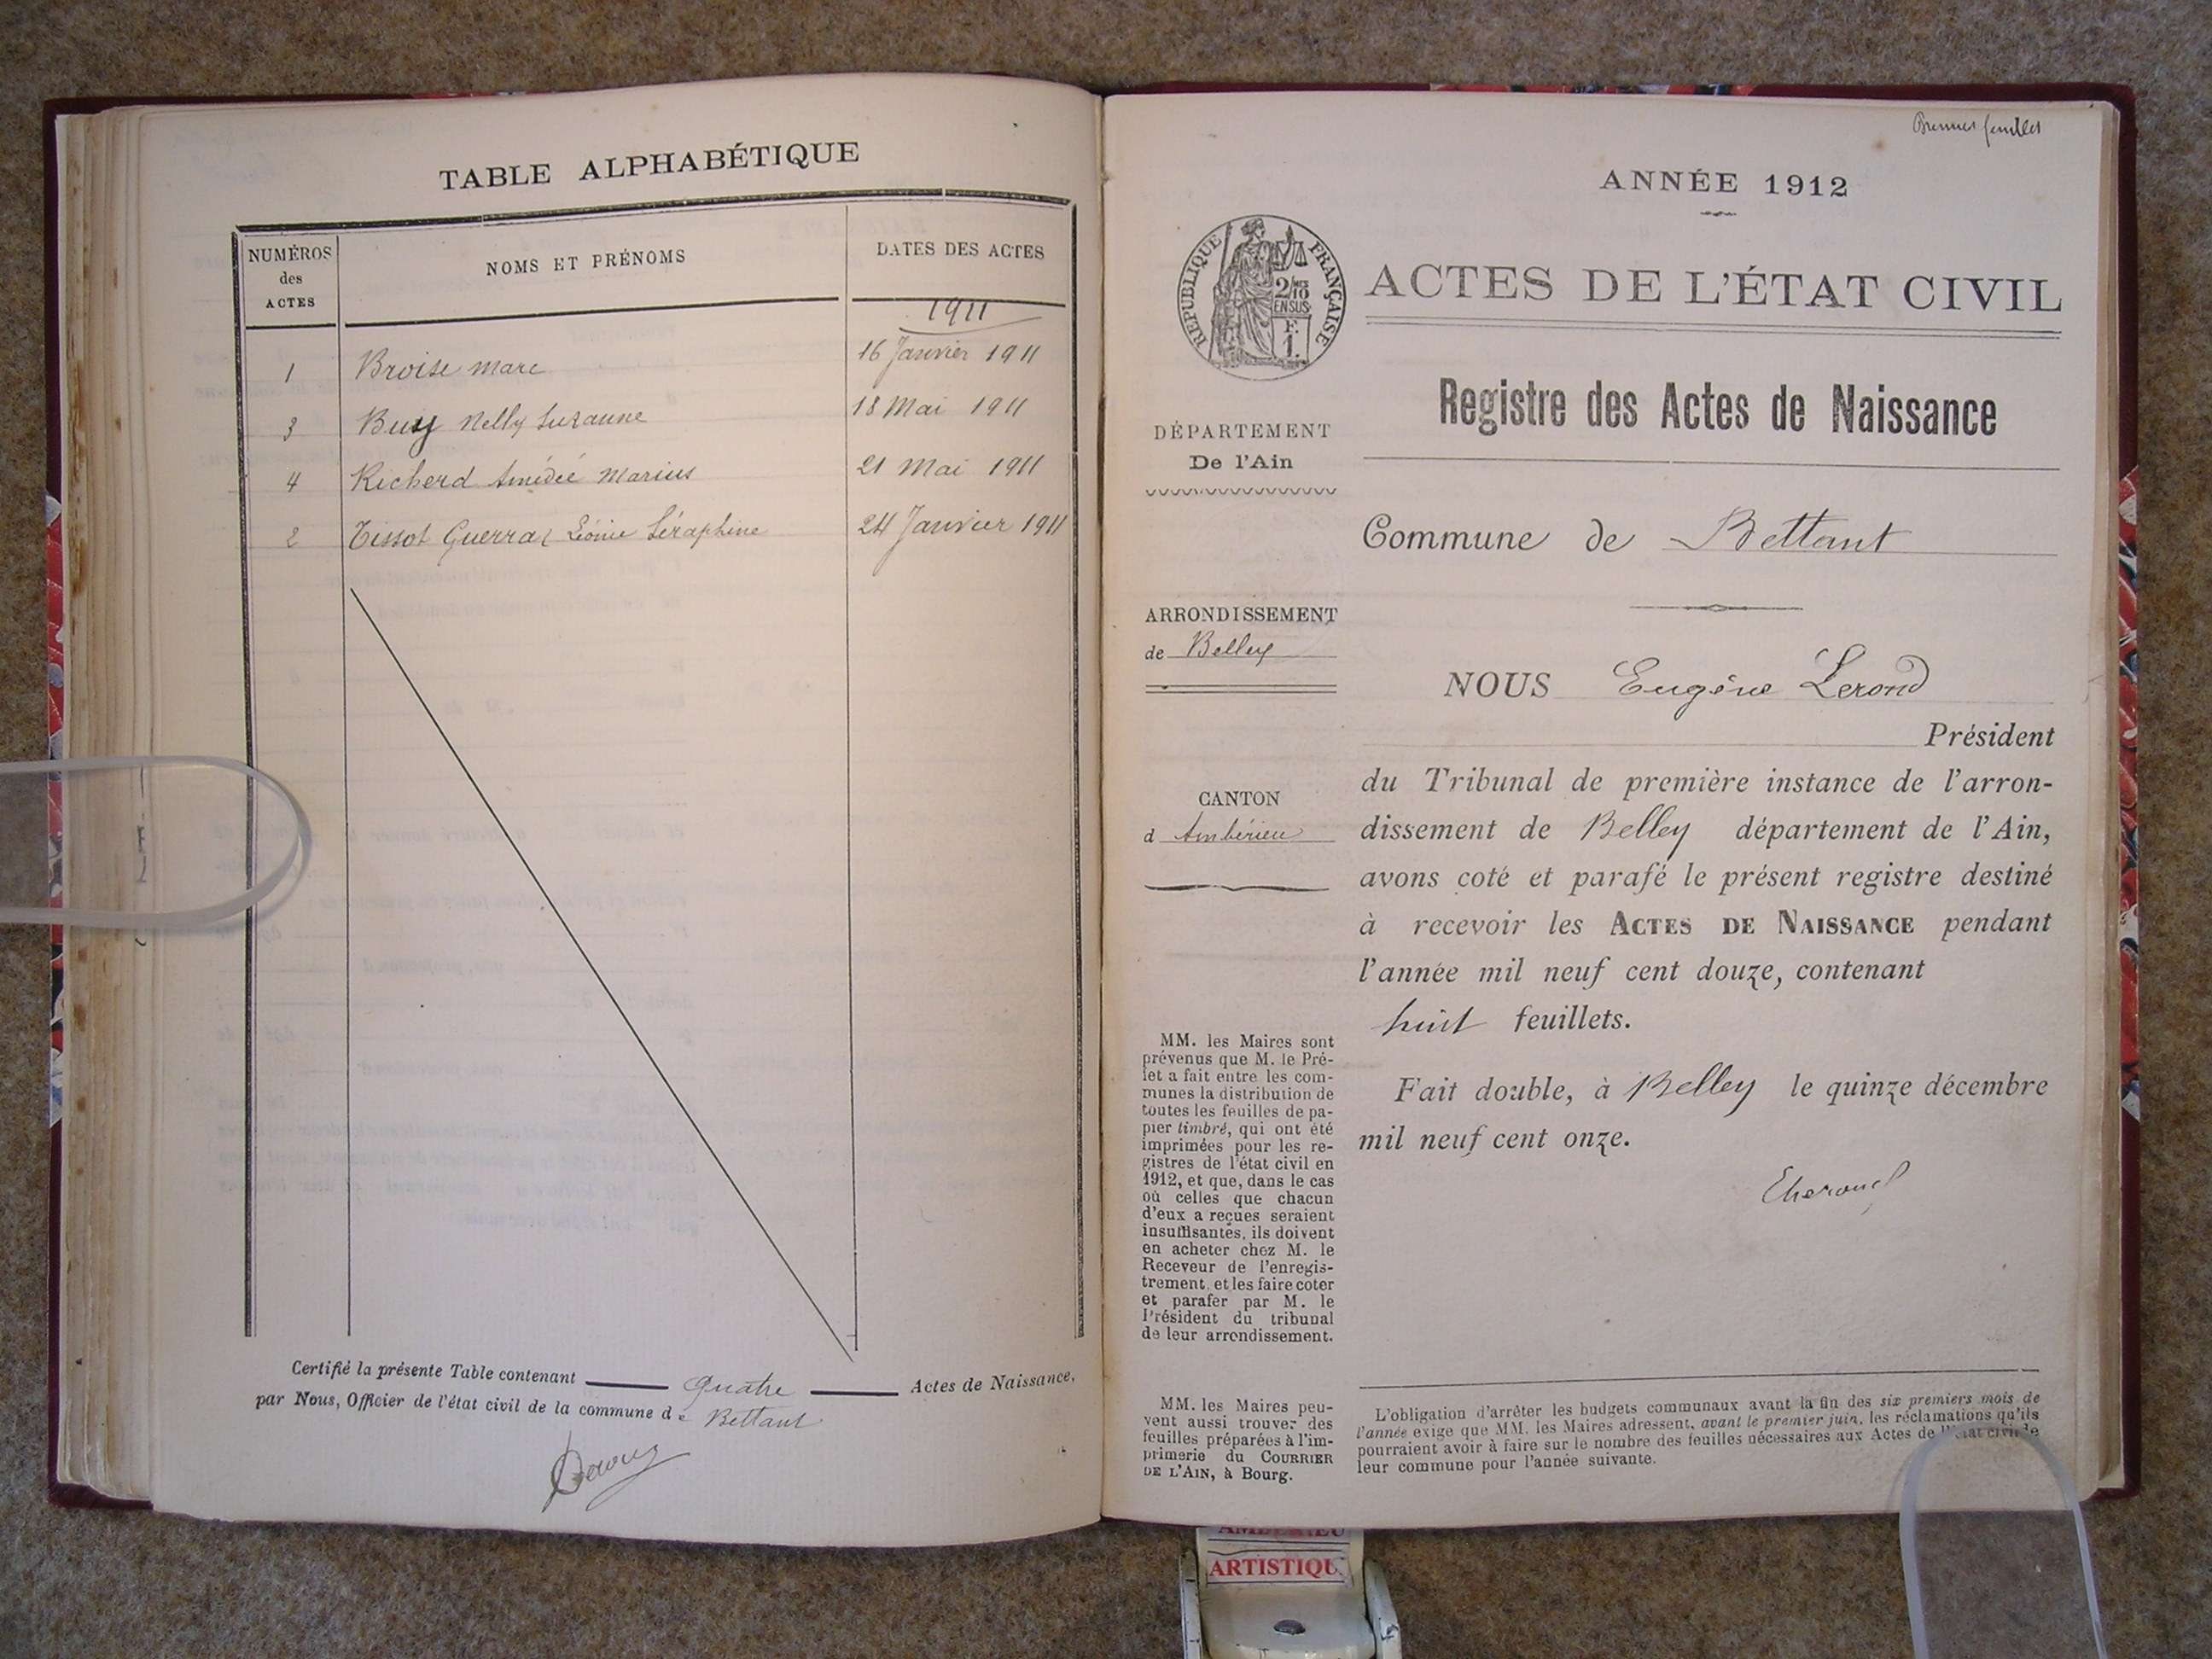 TABLE ALPHABÉTIQUE
NUMÉROS
des
ACTES
NOMS ET PRÉNOMS
DATES DES ACTES
1911
1 Broise Marc 16 Janvier 1911
3 Buy Nelly Suzanne 18 Mai 1911
4 Richerd Amédée Marius 21 Mai 1911
2 Tissot Guerraz Léonie Séraphine 24 Janvier 1911
Certifié la présente Table contenant Quatre Actes de Naissance,
par Nous, Officier de l'état civil de la commune de Bettant
Premier feuillet
ANNÉE 1912
RÉPUBLIQUE FRANÇAISE
2/10
EN SUS
F.
1.
ACTES DE L'ÉTAT CIVIL
Registre des Actes de Naissance
DÉPARTEMENT
De l'Ain
Commune de Bettant
ARRONDISSEMENT
de Belley
CANTON
d Ambérieu
NOUS Eugène Lerond
Président
du Tribunal de première instance de l'arron-
dissement de Belley département de l'Ain,
avons coté et parafé le présent registre destiné
à recevoir les ACTES DE NAISSANCE pendant
l'année mil neuf cent douze, contenant
huit feuillets.
Fait double, à Belley le quinze décembre
mil neuf cent onze.
MM. les Maires sont
prévenus que M. le Pré-
fet a fait entre les com-
munes la distribution de
toutes les feuilles de pa-
pier timbré, qui ont été
imprimées pour les re-
gistres de l'état civil en
1912, et que, dans le cas
où celles que chacun
d'eux a reçues seraient
insuffisantes, ils doivent
en acheter chez M. le
Receveur de l'enregis-
trement, et les faire coter
et parafer par M. le
Président du tribunal
de leur arrondissement.
MM. les Maires peu-
vent aussi trouver des
feuilles préparées à l'im-
primerie du COURRIER
DE L'AIN, à Bourg.
L'obligation d'arrêter les budgets communaux avant la fin des six premiers mois de
l'année exige que MM. les Maires adressent, avant le premier juin, les réclamations qu'ils
pourraient avoir à faire sur le nombre des feuilles nécessaires aux Actes de l'état civil de
leur commune pour l'année suivante.
ARTISTIQU